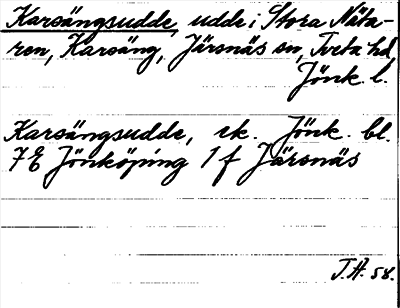 Karsängsudde, udde i Stora Näta-
ren, Karsäng, Järsnäs sn, Tveta hd,
Jönk. l.
Karsängsudde, ek. Jönk. bl.
7E Jönköping 1f Järsnäs
J.H. 58.